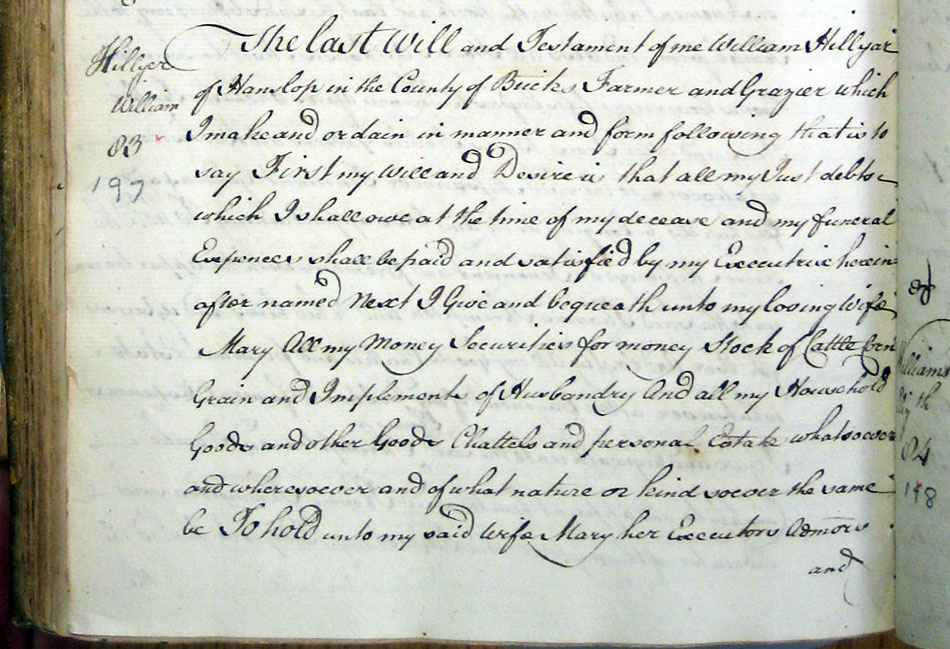 Hillyer
William
83
197
The last Will and Testament of me William Hillyar
of Hanslop in the County of Bucks Farmer and Grazier which
I make and ordain in manner and form following that is to
say First my Will and Desire is that all my Just debts
which I shall owe at the time of my decease and my funeral
Expences shall be paid and satisfied by my Executrix herein
after named Next I Give and bequeath unto my loving Wife
Mary All my Money Securities for money Stock of Cattle Corn
Grain and Implements of Husbandry And all my Household
Goods and other Goods Chattels and personal Estate whatsoever
and wheresoever and of what nature or kind soever the same
be To hold unto my said Wife Mary her Executors Admors
and
84
198